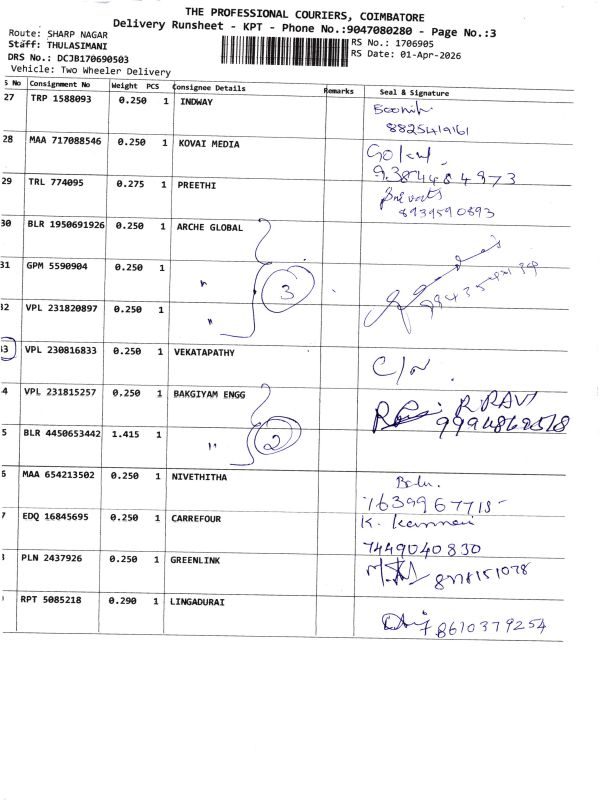 THE PROFESSIONAL COURIERS, COIMBATORE
Delivery Runsheet - KPT - Phone No.:9047080280 - Page No.:3
Route: SHARP NAGAR
Staff: THULASIMANI
RS No.: 1706905
DRS No.: DCJB170690503
RS Date: 01-Apr-2026
Vehicle: Two Wheeler Delivery
S No Consignment No Weight PCS Consignee Details Remarks Seal & Signature
27 TRP 1588093 0.250 1 INDWAY
8825419161
28 MAA 717088546 0.250 1 KOVAI MEDIA Gokul
9384484873
29 TRL 774095 0.275 1 PREETHI
8939590893
30 BLR 1950691926 0.250 1 ARCHE GLOBAL
31 GPM 5590904 0.250 1 " 3
32 VPL 231820897 0.250 1 "
33 VPL 230816833 0.250 1 VEKATAPATHY C/N
4 VPL 231815257 0.250 1 BAKGIYAM ENGG R RAVI
9994868518
5 BLR 4450653442 1.415 1 " 2
6 MAA 654213502 0.250 1 NIVETHITHA
7639967715
7 EDQ 16845695 0.250 1 CARREFOUR K.
7449040830
PLN 2437926 0.250 1 GREENLINK 8778151078
RPT 5085218 0.290 1 LINGADURAI 8610379254